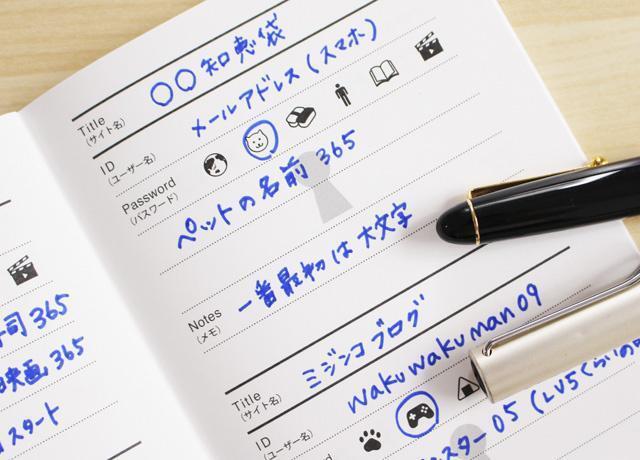 司365
映画365
スタート
Title ○○知恵袋
(サイト名)
ID メールアドレス(スマホ)
(ユーザー名)
Password
(パスワード)
ペットの名前365
Notes 一番最初は大文字
(メモ)
Title ミジンコブログ
(サイト名)
ID wakuwakuman09
(ユーザー名)
スター05(LV5くらいの